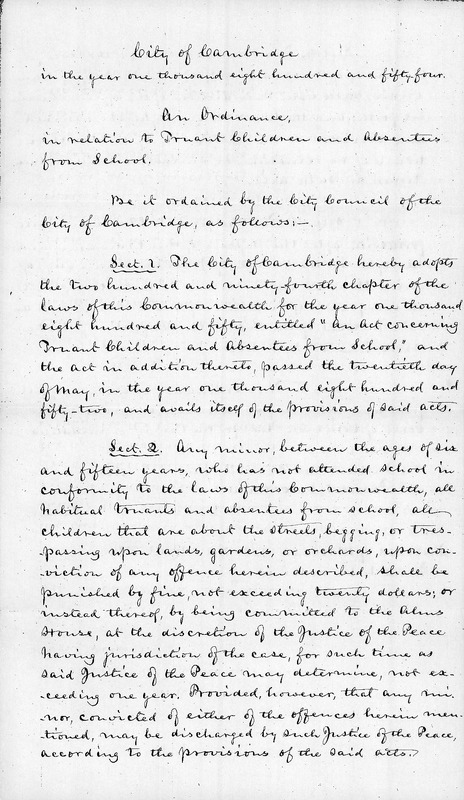 City of Cambridge
in the year one thousand eight hundred and fifty four.
An Ordinance,
in relation to Truant Children and Absentees
from School.
Be it ordained by the City Council of the
City of Cambridge, as follows:—
Sect. 1. The City of Cambridge hereby adopts
the two hundred and ninety-fourth chapter of the
laws of this Commonwealth for the year one thousand
eight hundred and fifty, entitled "An Act concerning
Truant Children and Absentees from School," and
the act in addition thereto, passed the twentieth day
of May, in the year one thousand eight hundred and
fifty-two, and avails itself of the provisions of said acts.
Sect. 2. Any minor, between the ages of six
and fifteen years, who has not attended school in
conformity to the laws of this Commonwealth, all
habitual truants and absentees from school, all
children that are about the streets, begging, or tres-
-passing upon lands, gardens, or orchards, upon con-
-viction of any offence herein described, shall be
punished by fine, not exceeding twenty dollars; or
instead thereof, by being committed to the Alms
House, at the discretion of the Justice of the Peace
having jurisdiction of the case, for such time as
said Justice of the Peace may determine, not ex-
-ceeding one year. Provided, however, that any mi-
-nor, convicted of either of the offences herein men-
-tioned, may be discharged by such Justice of the Peace,
according to the provisions of the said acts.